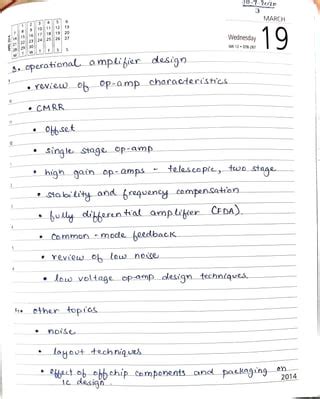 3
MARCH
Wednesday
19
3. operational amplifier design
• review of op-amp characteristics
• CMRR
• offset
• single stage op-amp
• high gain op-amps - telescopic, two stage
• stability and frequency compensation
• fully differential amplifier (FDA).
• common-mode feedback
• review of low noise
• low voltage op-amp design techniques.
4. other topics
• noise
• layout techniques
• effect of offchip components and packaging on
IC design.
2014